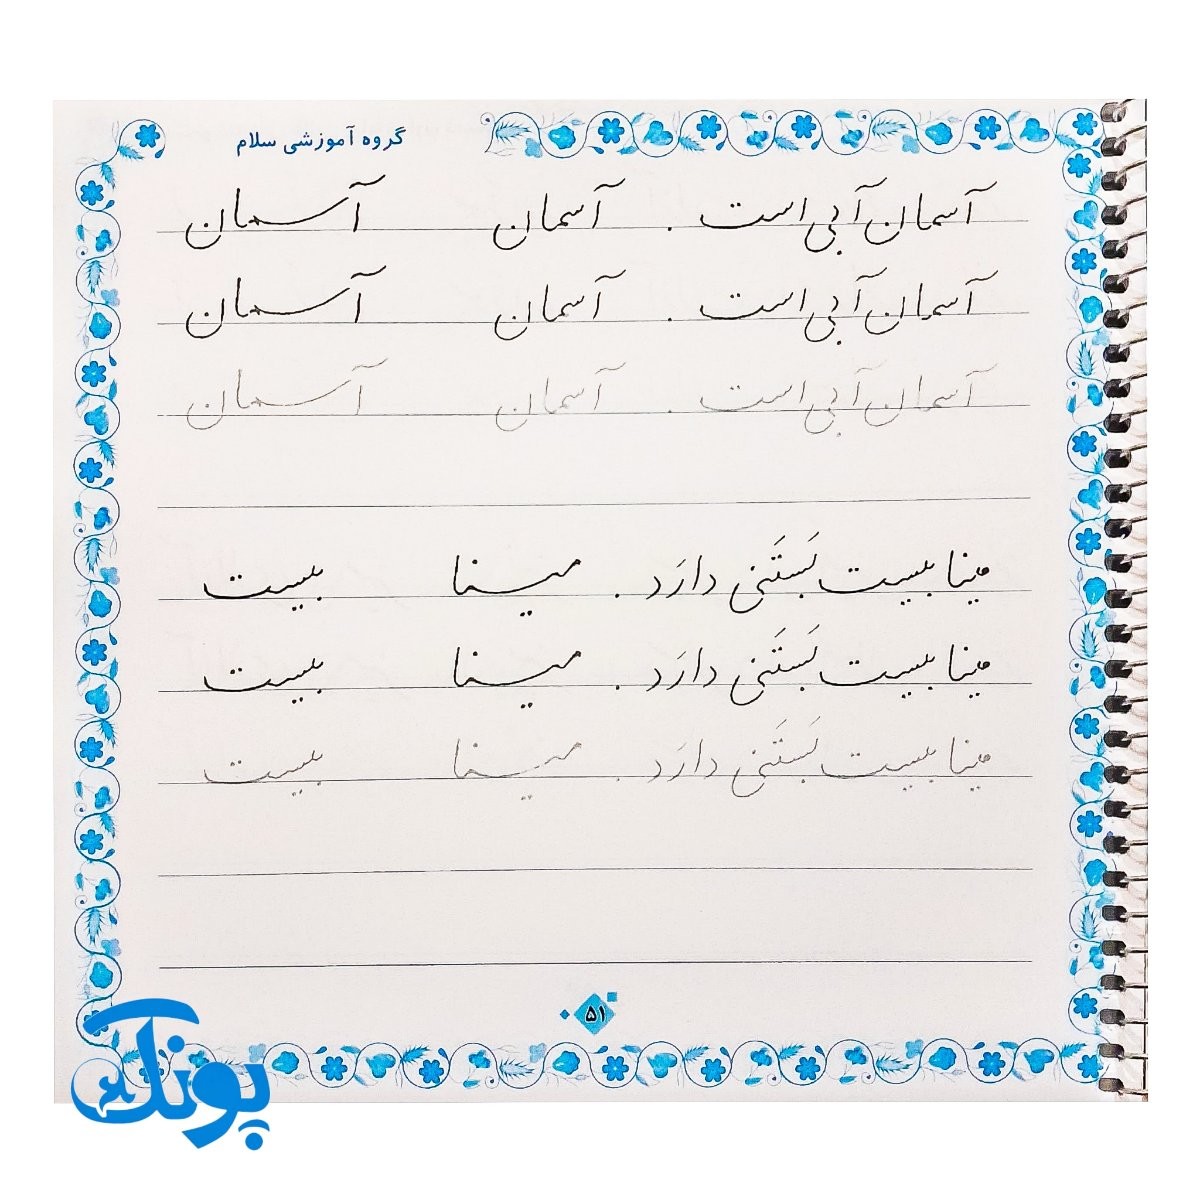 گروه آموزشی سلام
آسمان آبی است . آسمان آسمان
آسمان آبی است . آسمان آسمان
آسمان آبی است . آسمان آسمان
مینا بیست بَستَنی دارَد . مینا بیست
مینا بیست بَستَنی دارَد . مینا بیست
مینا بیست بَستَنی دارَد . مینا بیست
۵۱
پونک